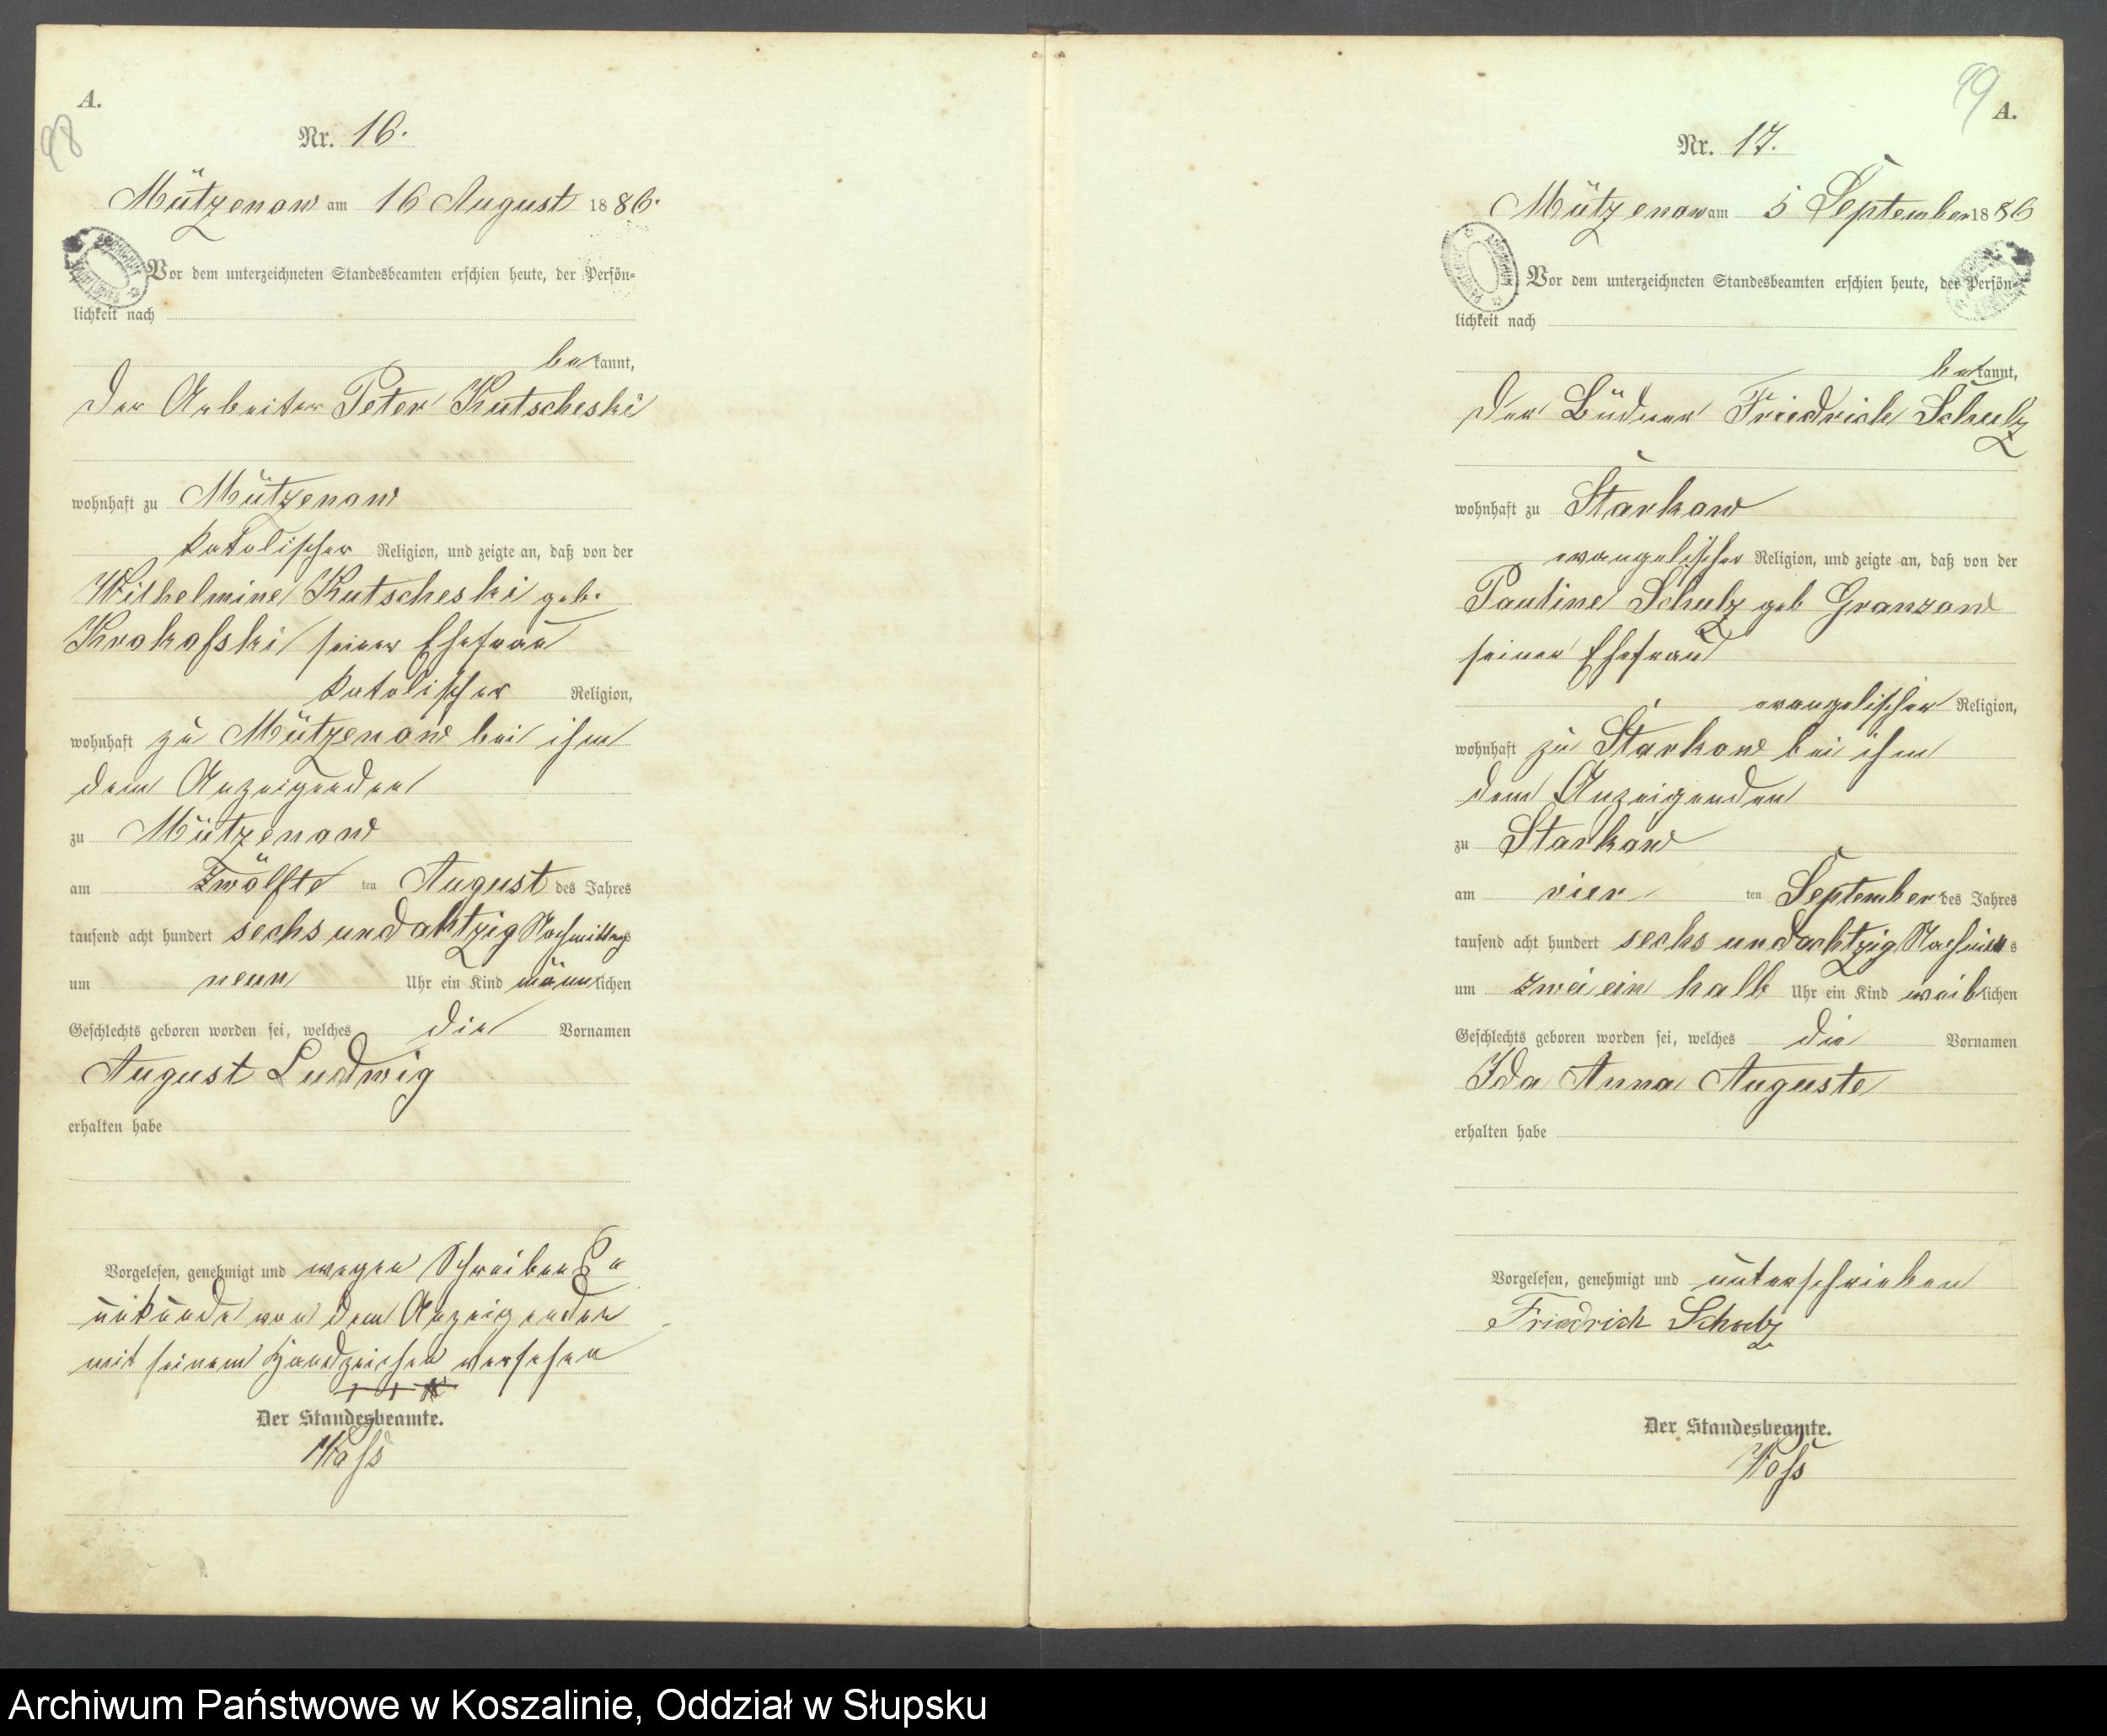 A.
98
Nr. 16.
Mützenow am 16 August 1886.
Vor dem unterzeichneten Standesbeamten erschien heute, der Persön-
lichkeit nach
bekannt,
der Arbeiter Peter Kutscheski
wohnhaft zu Mützenow
katolischer Religion, und zeigte an, daß von der
Wilhelmine Kutscheski geb.
Krokofski seiner Ehefrau
katolischer Religion,
wohnhaft zu Mützenow bei ihm
dem Anzeigenden
zu Mützenow
am Zwölfte ten August des Jahres
tausend acht hundert sechs und achtzig Nachmittags
um neun Uhr ein Kind männlichen
Geschlechts geboren worden sei, welches die Vornamen
August Ludwig
erhalten habe
Vorgelesen, genehmigt und wegen Schreibens
unkunde von dem Anzeigenden
mit seinem Handzeichen versehen
+++
Der Standesbeamte.
Voß
99
A.
Nr. 17.
Mützenow am 5 September 1886
Vor dem unterzeichneten Standesbeamten erschien heute, der Persön-
lichkeit nach
bekannt,
der Büdner Friedrich Schulz
wohnhaft zu Starkow
evangelischer Religion, und zeigte an, daß von der
Pauline Schulz geb Granzow
seiner Ehefrau
evangelischer Religion,
wohnhaft zu Starkow bei ihm
dem Anzeigenden
zu Starkow
am vier ten September des Jahres
tausend acht hundert sechs und achtzig Nachmitts
um zwei ein halb Uhr ein Kind weiblichen
Geschlechts geboren worden sei, welches die Vornamen
Ida Anna Auguste
erhalten habe
Vorgelesen, genehmigt und unterschrieben
Friedrich Schulz
Der Standesbeamte.
Voß
Archiwum Państwowe w Koszalinie, Oddział w Słupsku